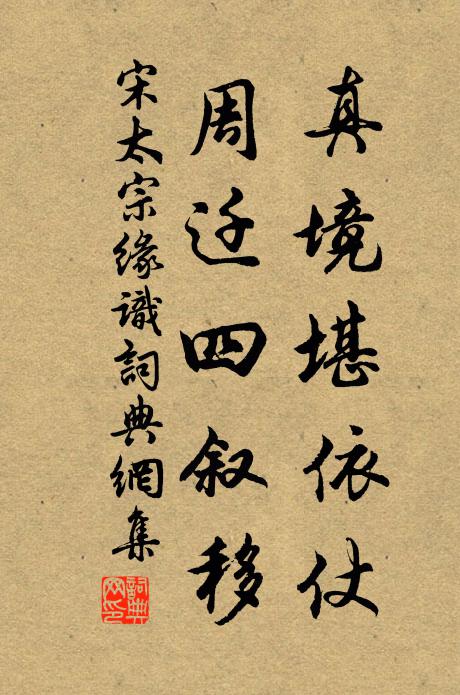 真境堪依仗
周迁四叙移
宋太宗缘識詞典網集
詞典網印